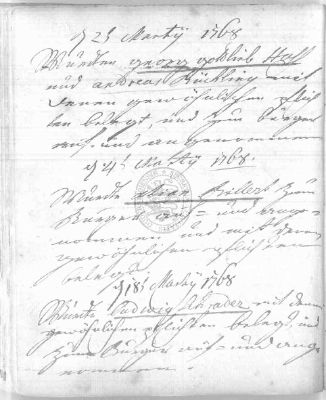 d 2t Martÿ 1768
Wurden georg gottlieb
und andreas Bückling mit
denen gewöhnlichen Pflich
ten belegt, und zum bürger
auf und angenommen
d 4t Martÿ 1768.
Wurde zum
Burger auf= und ange=
nommen und mit denen
gewöhnlichen pflichten
belegt
d 18t Martÿ 1768
Wurde Ludwig Schrader mit denen
gewöhnlichen pflichten belegt, und
zum Burger auf= und ange
nommen.